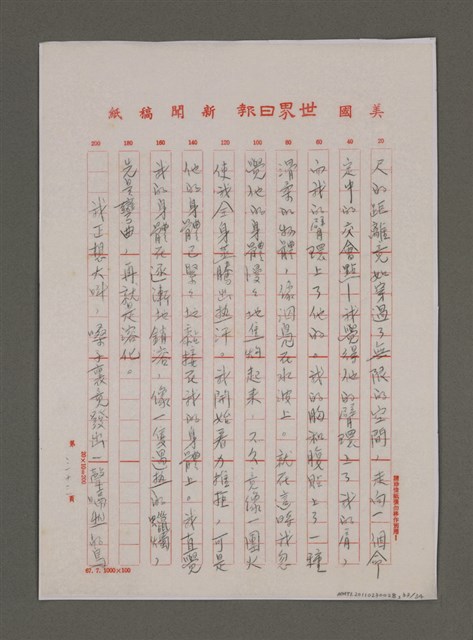 美國世界日報新聞稿紙
20
40
60
80
100
120
140
160
180
200
尺的距離竟如穿過了無限的空間,走向一個命
定中的交會點—我覺得他的臂環上了我的肩,
而我的臂環上了他的。我的胸和腹貼上了一種
滑柔的物體,像泅鳥在水波上。就在這時我忽
覺他的身體慢慢地焦灼起來,不久竟像一團火
使我全身蒸騰出熱汗。我開始著力推拒,可是
他的身體已緊緊地黏接在我的身體上。我直覺
我的身體在逐漸地銷溶,像一隻過熱的蠟燭,
先是彎曲,再替是溶化。
我正想大叫,嗓子裏竟發出一聲嘶啞的鳥
第 頁
20×10=200
67.7.1000×100